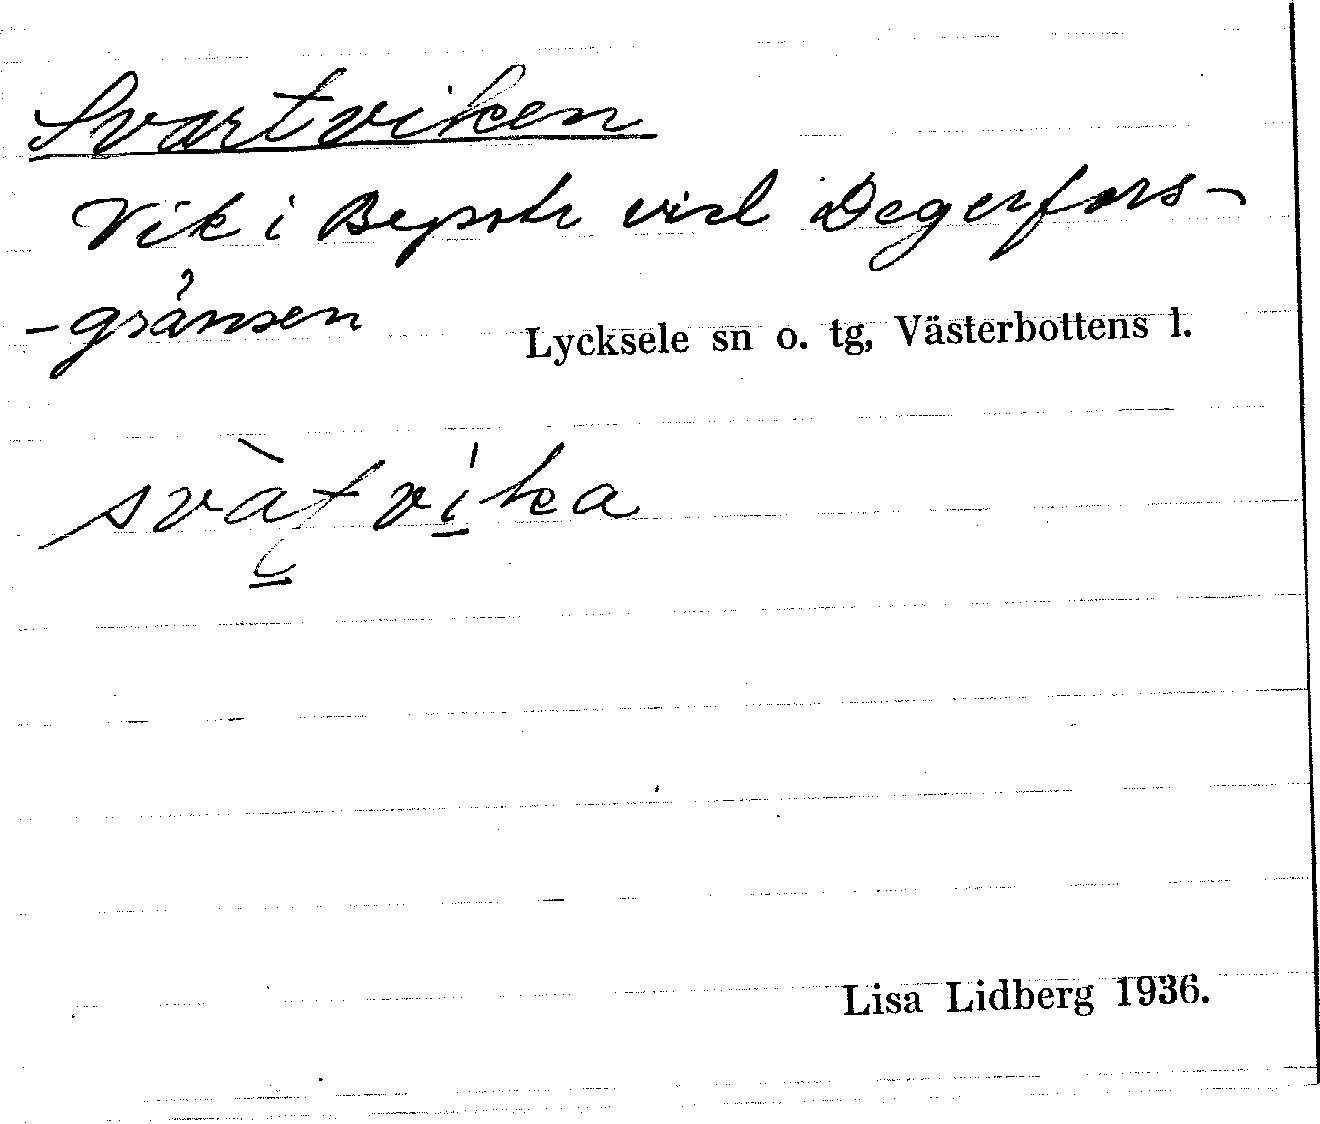 Svartviken
Vik i vid Degerfors-
-gränsen
Lycksele sn o. tg, Västerbottens l.
svàt vika
Lisa Lidberg 1936.